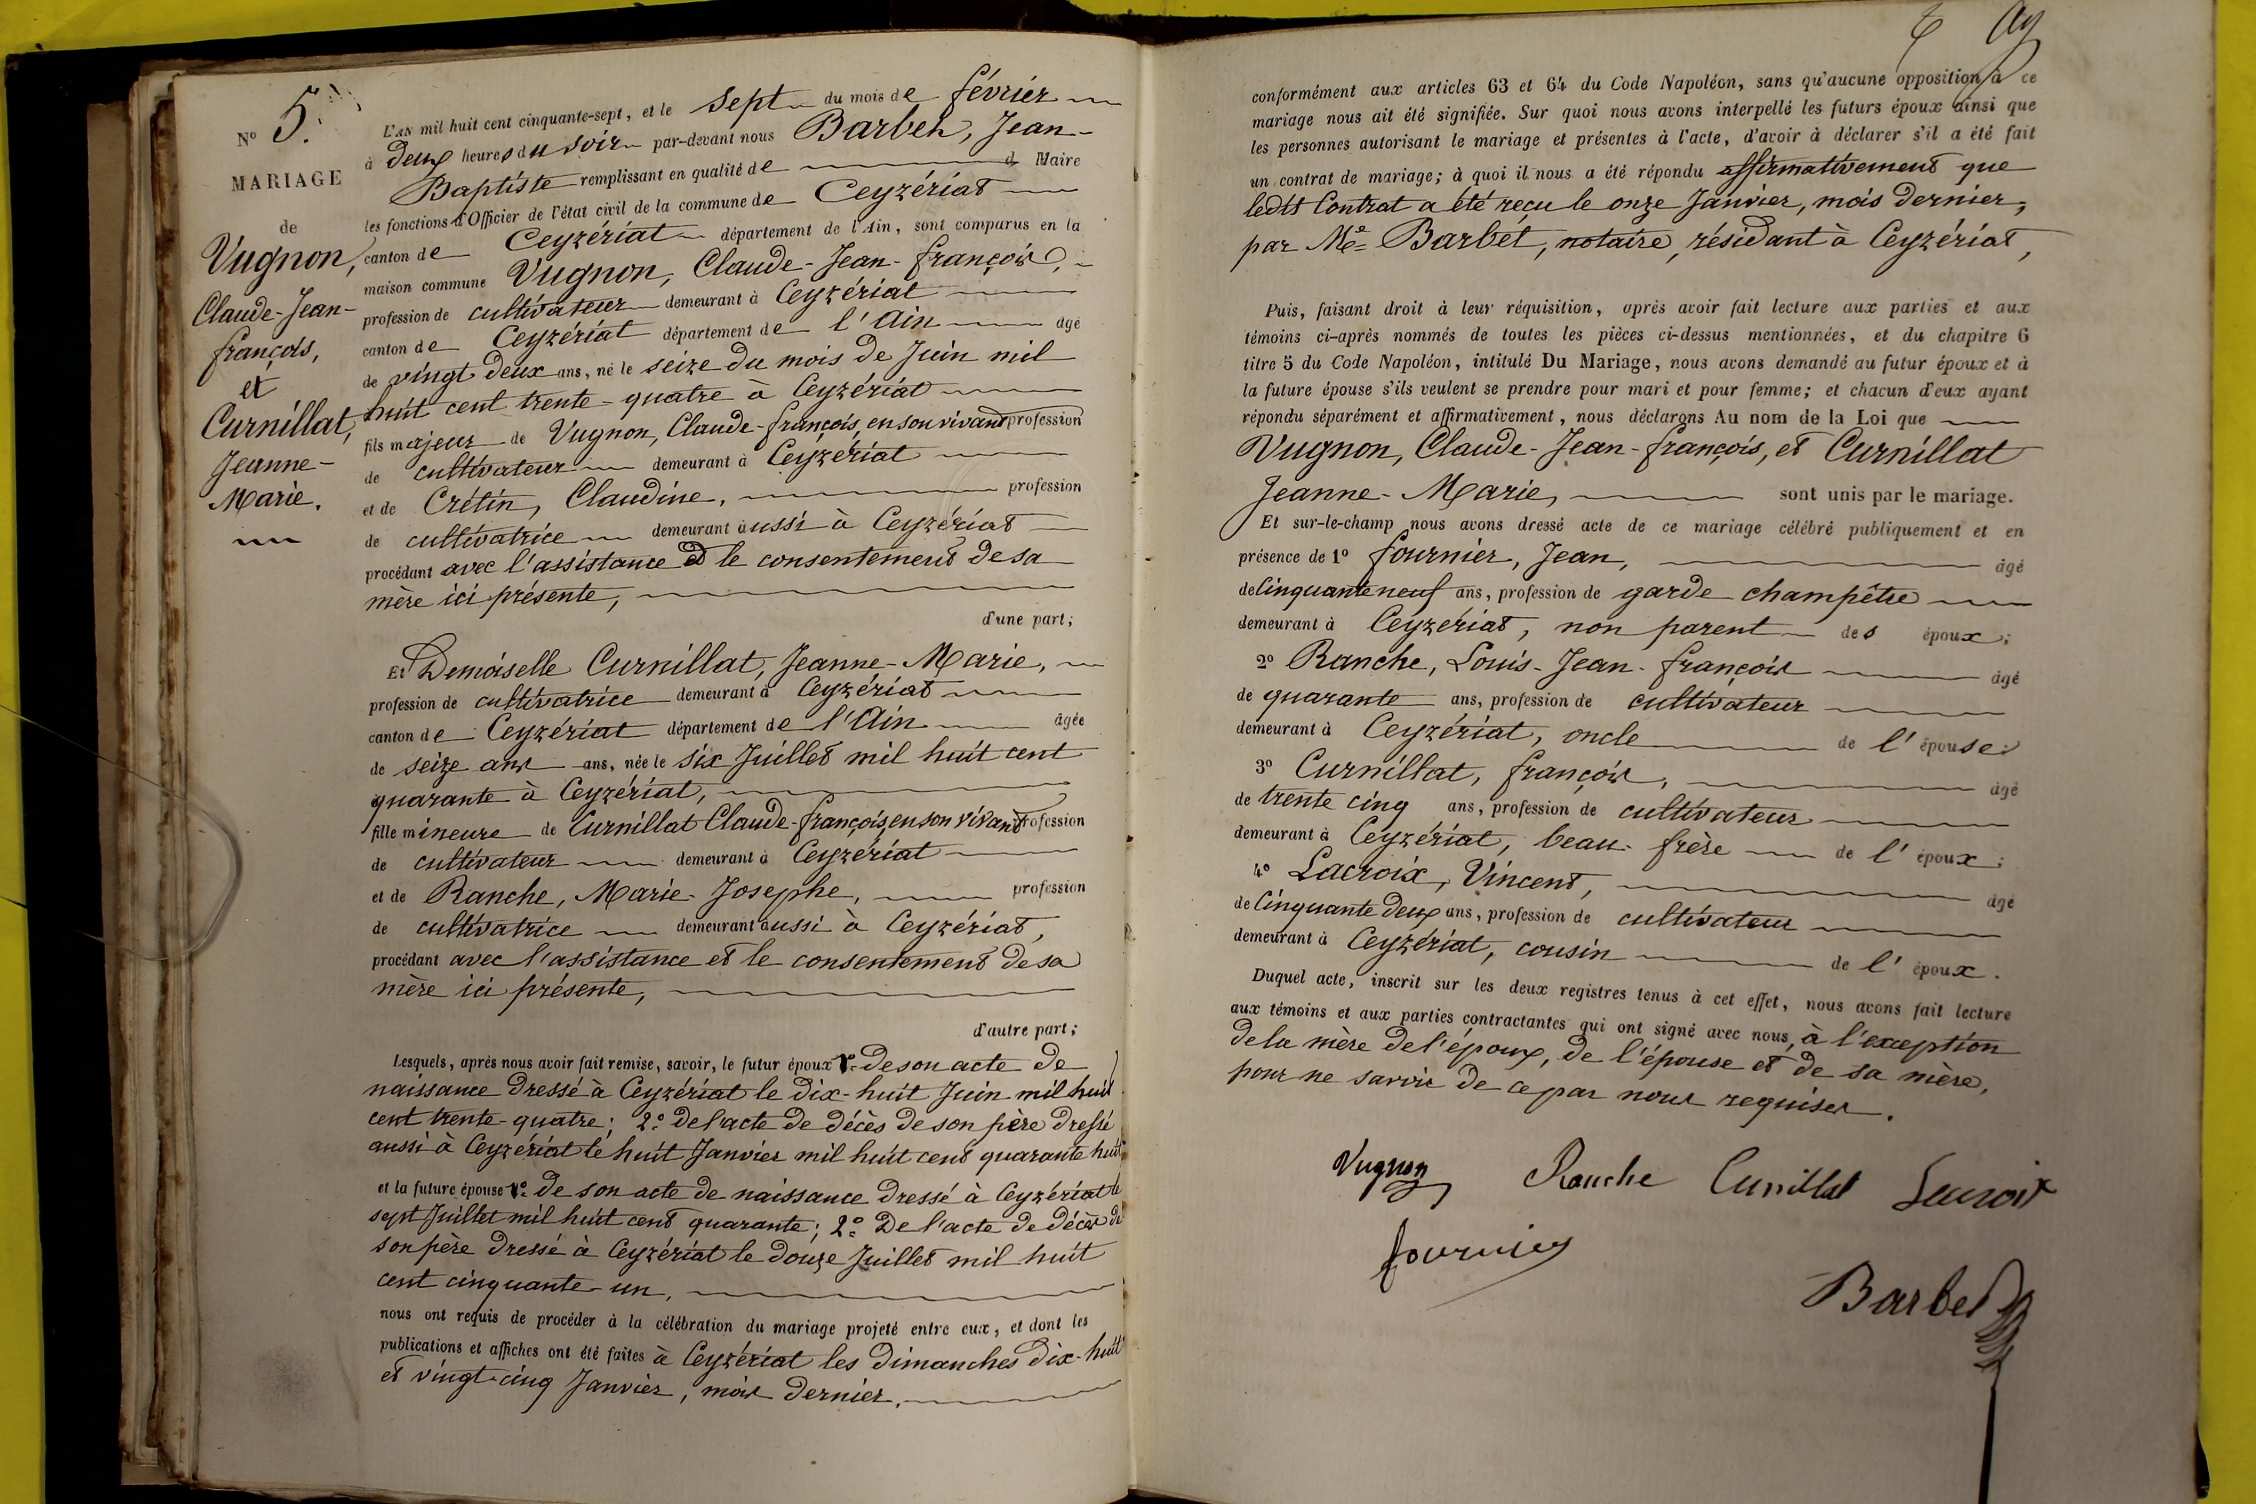 N° 5.
MARIAGE
de
Vugnon,
Claude-Jean-
françois,
et
Curnillat,
Jeanne-
Marie.
L'AN mil huit cent cinquante-sept, et le sept du mois de février
à deux heures du soir par-devant nous Barbet, Jean-
Baptiste remplissant en qualité de Maire
les fonctions d'Officier de l'état civil de la commune de Ceyzériat
canton de Ceyzériat département de l'Ain, sont comparus en la
maison commune Vugnon, Claude-Jean-françois,
profession de cultivateur demeurant à Ceyzériat
canton de Ceyzériat département de l'Ain âgé
de vingt deux ans, né le seize du mois de Juin mil
huit cent trente-quatre à Ceyzériat
fils majeur de Vugnon, Claude-françois, en son vivant profession
de cultivateur demeurant à Ceyzériat
et de Crétin, Claudine, profession
de cultivatrice demeurant aussi à Ceyzériat
procédant avec l'assistance et le consentement de sa
mère ici présente,
d'une part;
Et Demoiselle Curnillat, Jeanne-Marie,
profession de cultivatrice demeurant à Ceyzériat
canton de Ceyzériat département de l'Ain âgée
de seize ans ans, née le six Juillet mil huit cent
quarante à Ceyzériat,
fille mineure de Curnillat Claude-françois, en son vivant profession
de cultivateur demeurant à Ceyzériat
et de Ranche, Marie-Josephe, profession
de cultivatrice demeurant aussi à Ceyzériat,
procédant avec l'assistance et le consentement de sa
mère ici présente,
d'autre part;
Lesquels, après nous avoir fait remise, savoir, le futur époux 1° de son acte de
naissance dressé à Ceyzériat le dix-huit Juin mil huit
cent trente-quatre; 2° de l'acte de décès de son père dressé
aussi à Ceyzériat le huit Janvier mil huit cent quarante huit
et la future épouse 1° de son acte de naissance dressé à Ceyzériat le
sept Juillet mil huit cent quarante; 2° De l'acte de décès de
son père dressé à Ceyzériat le douze Juillet mil huit
cent cinquante-un,
nous ont requis de procéder à la célébration du mariage projeté entre eux, et dont les
publications et affiches ont été faites à Ceyzériat les dimanches dix-huit
et vingt-cinq Janvier, mois dernier,
conformément aux articles 63 et 64 du Code Napoléon, sans qu'aucune opposition à ce
mariage nous ait été signifiée. Sur quoi nous avons interpellé les futurs époux ainsi que
les personnes autorisant le mariage et présentes à l'acte, d'avoir à déclarer s'il a été fait
un contrat de mariage; à quoi il nous a été répondu affirmativement que
ledit Contrat a été reçu le onze Janvier, mois dernier,
par Me Barbet, notaire, résidant à Ceyzériat,
Puis, faisant droit à leur réquisition, après avoir fait lecture aux parties et aux
témoins ci-après nommés de toutes les pièces ci-dessus mentionnées, et du chapitre 6
titre 5 du Code Napoléon, intitulé Du Mariage, nous avons demandé au futur époux et à
la future épouse s'ils veulent se prendre pour mari et pour femme; et chacun d'eux ayant
répondu séparément et affirmativement, nous déclarons Au nom de la Loi que
Vugnon, Claude-Jean-françois, et Curnillat
Jeanne-Marie, sont unis par le mariage.
Et sur-le-champ nous avons dressé acte de ce mariage célébré publiquement et en
présence de 1° fournier, Jean, âgé
de Cinquante neuf ans, profession de garde champêtre
demeurant à Ceyzériat, non parent des époux;
2° Ranche, Louis-Jean-françois âgé
de quarante ans, profession de cultivateur
demeurant à Ceyzériat, oncle de l'épouse;
3° Curnillat, françois, âgé
de trente cinq ans, profession de cultivateur
demeurant à Ceyzériat, beau-frère de l'époux;
4° Lacroix, Vincent, âgé
de Cinquante deux ans, profession de cultivateur
demeurant à Ceyzériat, cousin de l'époux.
Duquel acte, inscrit sur les deux registres tenus à cet effet, nous avons fait lecture
aux témoins et aux parties contractantes qui ont signé avec nous, à l'exception
de la mère de l'époux, de l'épouse et de sa mère,
pour ne savoir de ce par nous requises.
Vugnon Ranche Curnillat Lacroix
fournier
Barbet